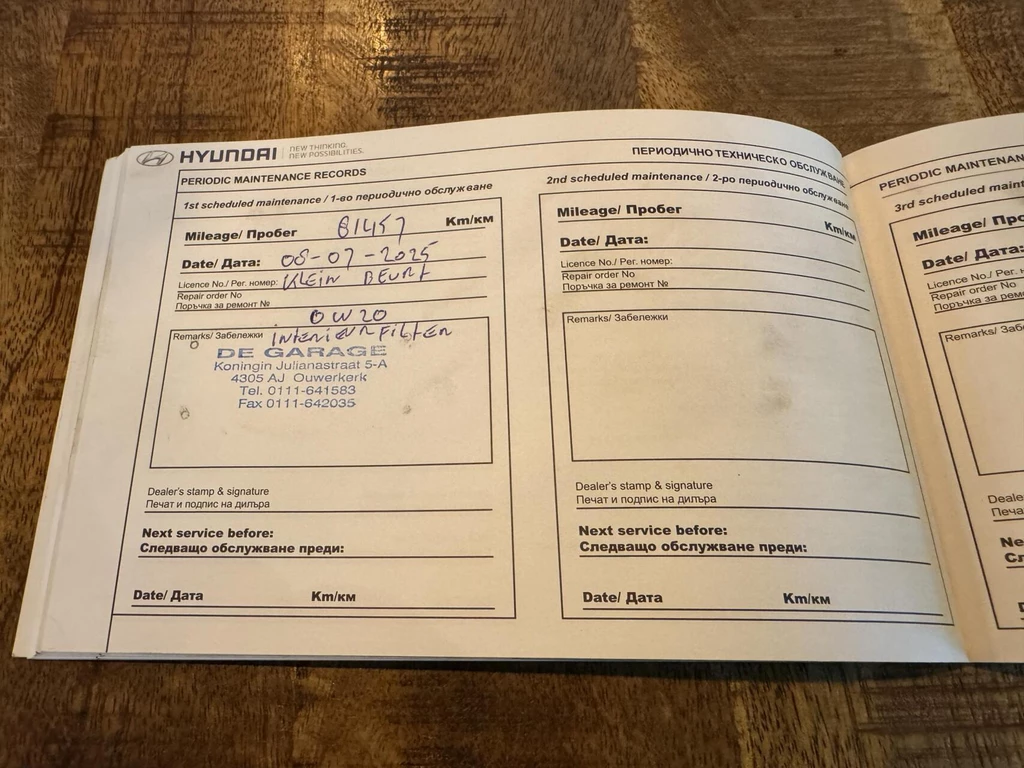 HYUNDAI
NEW THINKING.
NEW POSSIBILITIES.
PERIODIC MAINTENANCE RECORDS
ПЕРИОДИЧНО ТЕХНИЧЕСКО ОБСЛУЖВАНЕ
1st scheduled maintenance / 1-во периодично обслужване
Mileage/ Пробег 81457 Km/км
Date/ Дата: 08-07-2025
Licence No./ Рег. номер: KLEIN BEURT
Repair order No
Поръчка за ремонт №
0W20
Remarks/ Забележки INTERIEURFILTER
DE GARAGE
Koningin Julianastraat 5-A
4305 AJ Ouwerkerk
Tel. 0111-641583
Fax 0111-642035
Dealer's stamp & signature
Печат и подпис на дилъра
Next service before:
Следващо обслужване преди:
Date/ Дата Km/км
2nd scheduled maintenance / 2-ро периодично обслужване
Mileage/ Пробег Km/км
Date/ Дата:
Licence No./ Рег. номер:
Repair order No
Поръчка за ремонт №
Remarks/ Забележки
Dealer's stamp & signature
Печат и подпис на дилъра
Next service before:
Следващо обслужване преди:
Date/ Дата Km/км
PERIODIC MAINTENAN
3rd scheduled maint
Mileage/ Проб
Date/ Дата:
Licence No./ Рег. н
Repair order No
Поръчка за рем
Remarks/ Забе
Deale
Печа
Ne
Сл